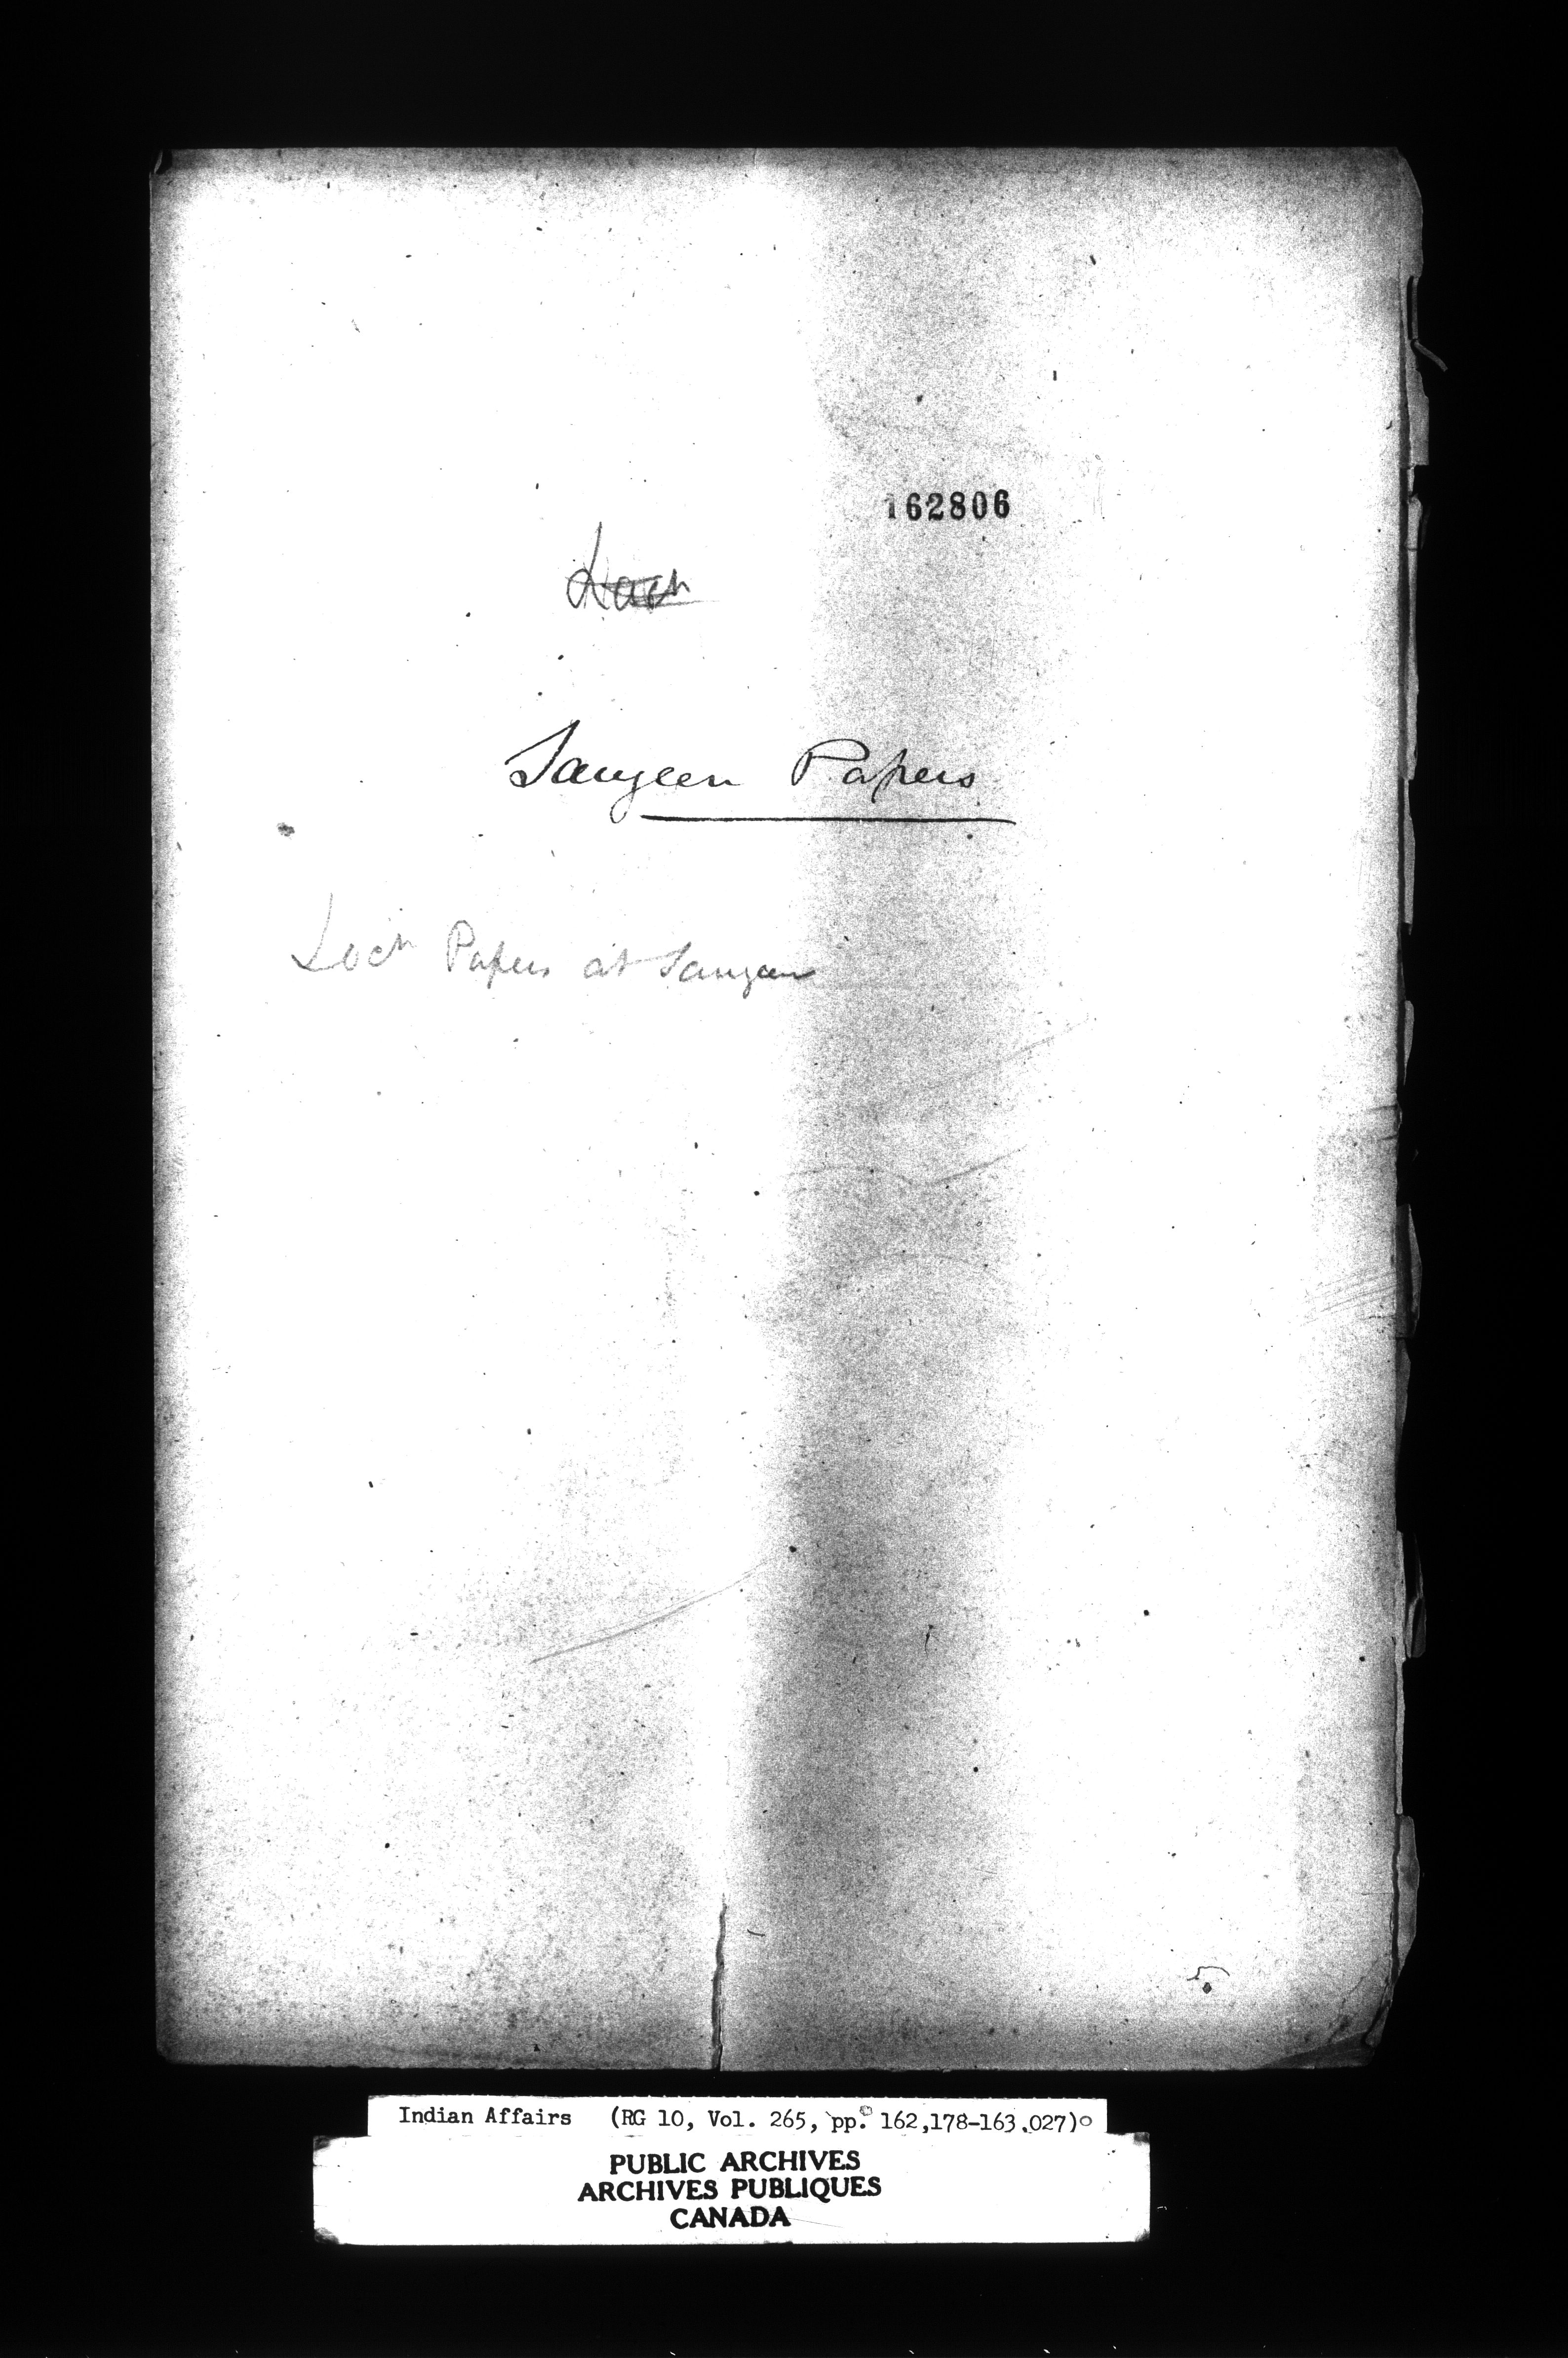 162806
Loch
Saugeen Papers
Loch Papers at Saugeen
Indian Affairs (RG 10, Vol. 265, pp. 162,178-163,027)
PUBLIC ARCHIVES
ARCHIVES PUBLIQUES
CANADA